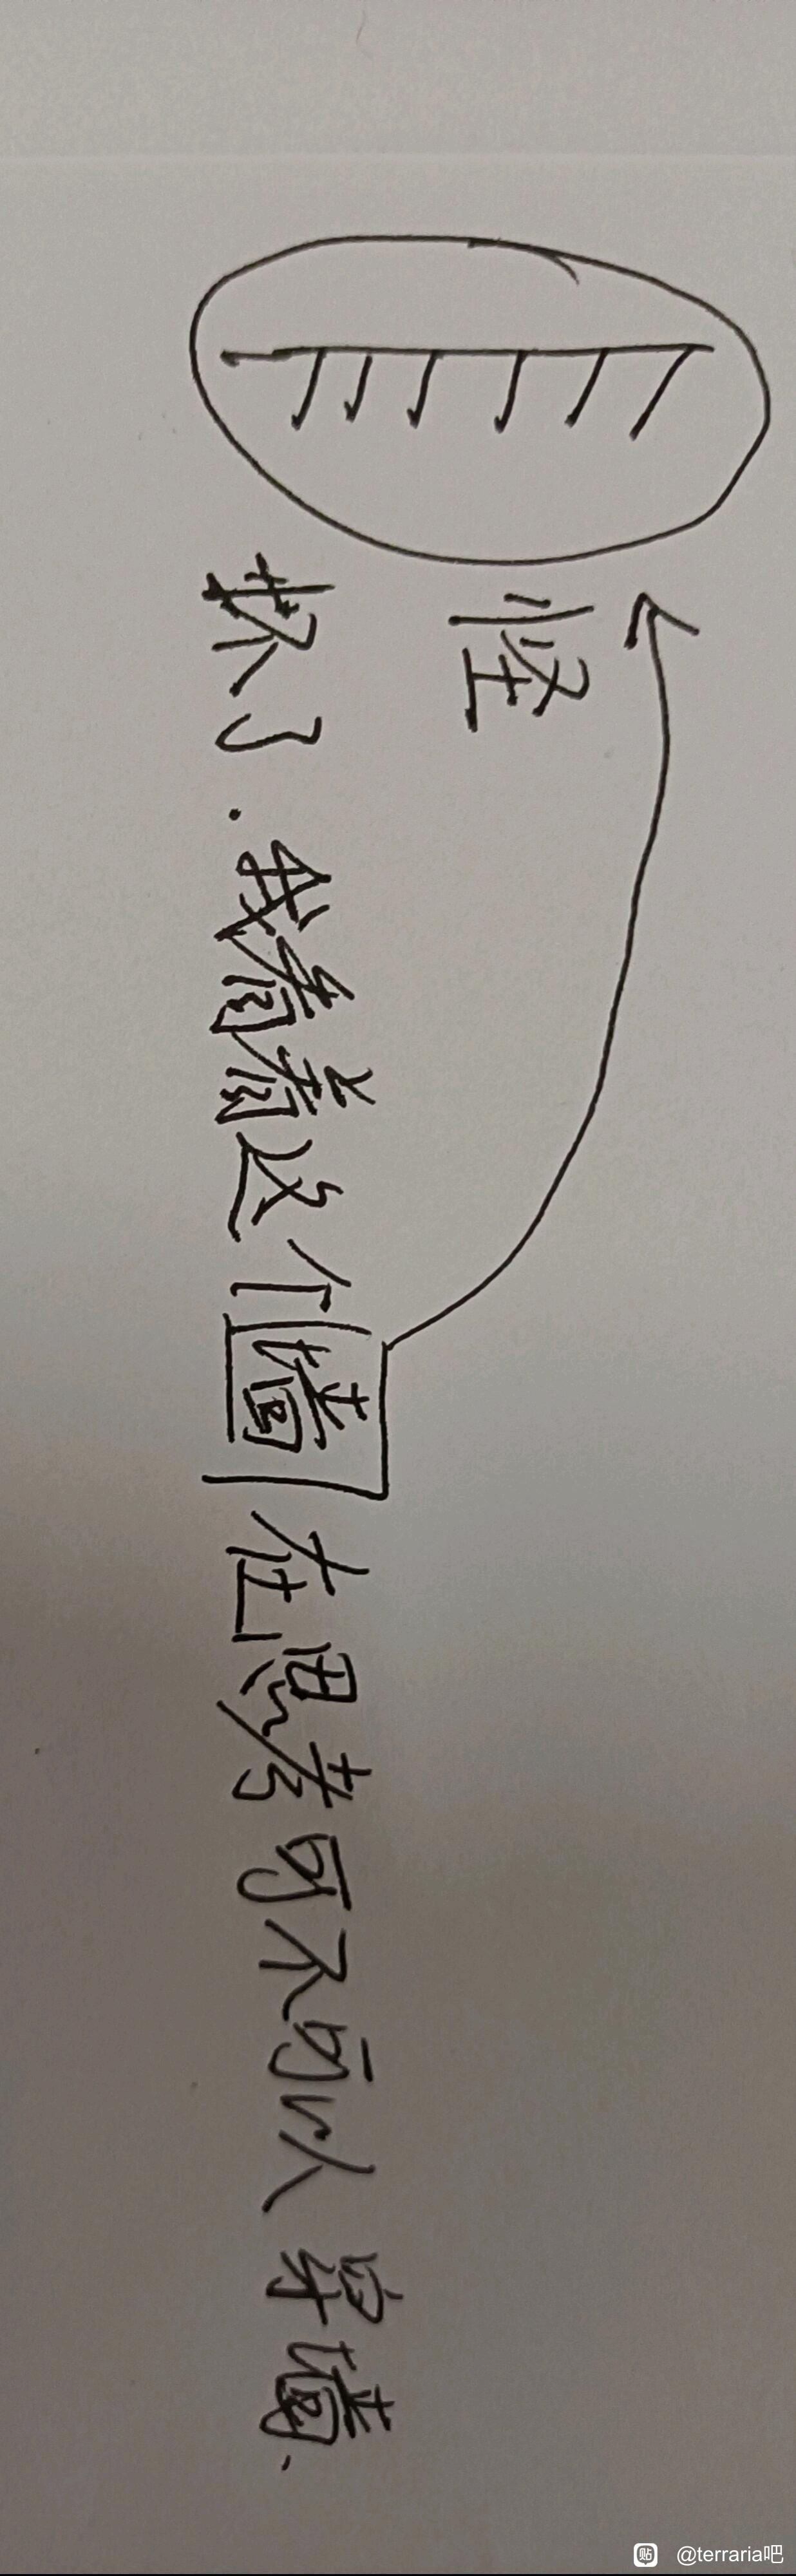 怪
坏了.我看着这个墙在思考可不可以穿墙.
@terraria吧